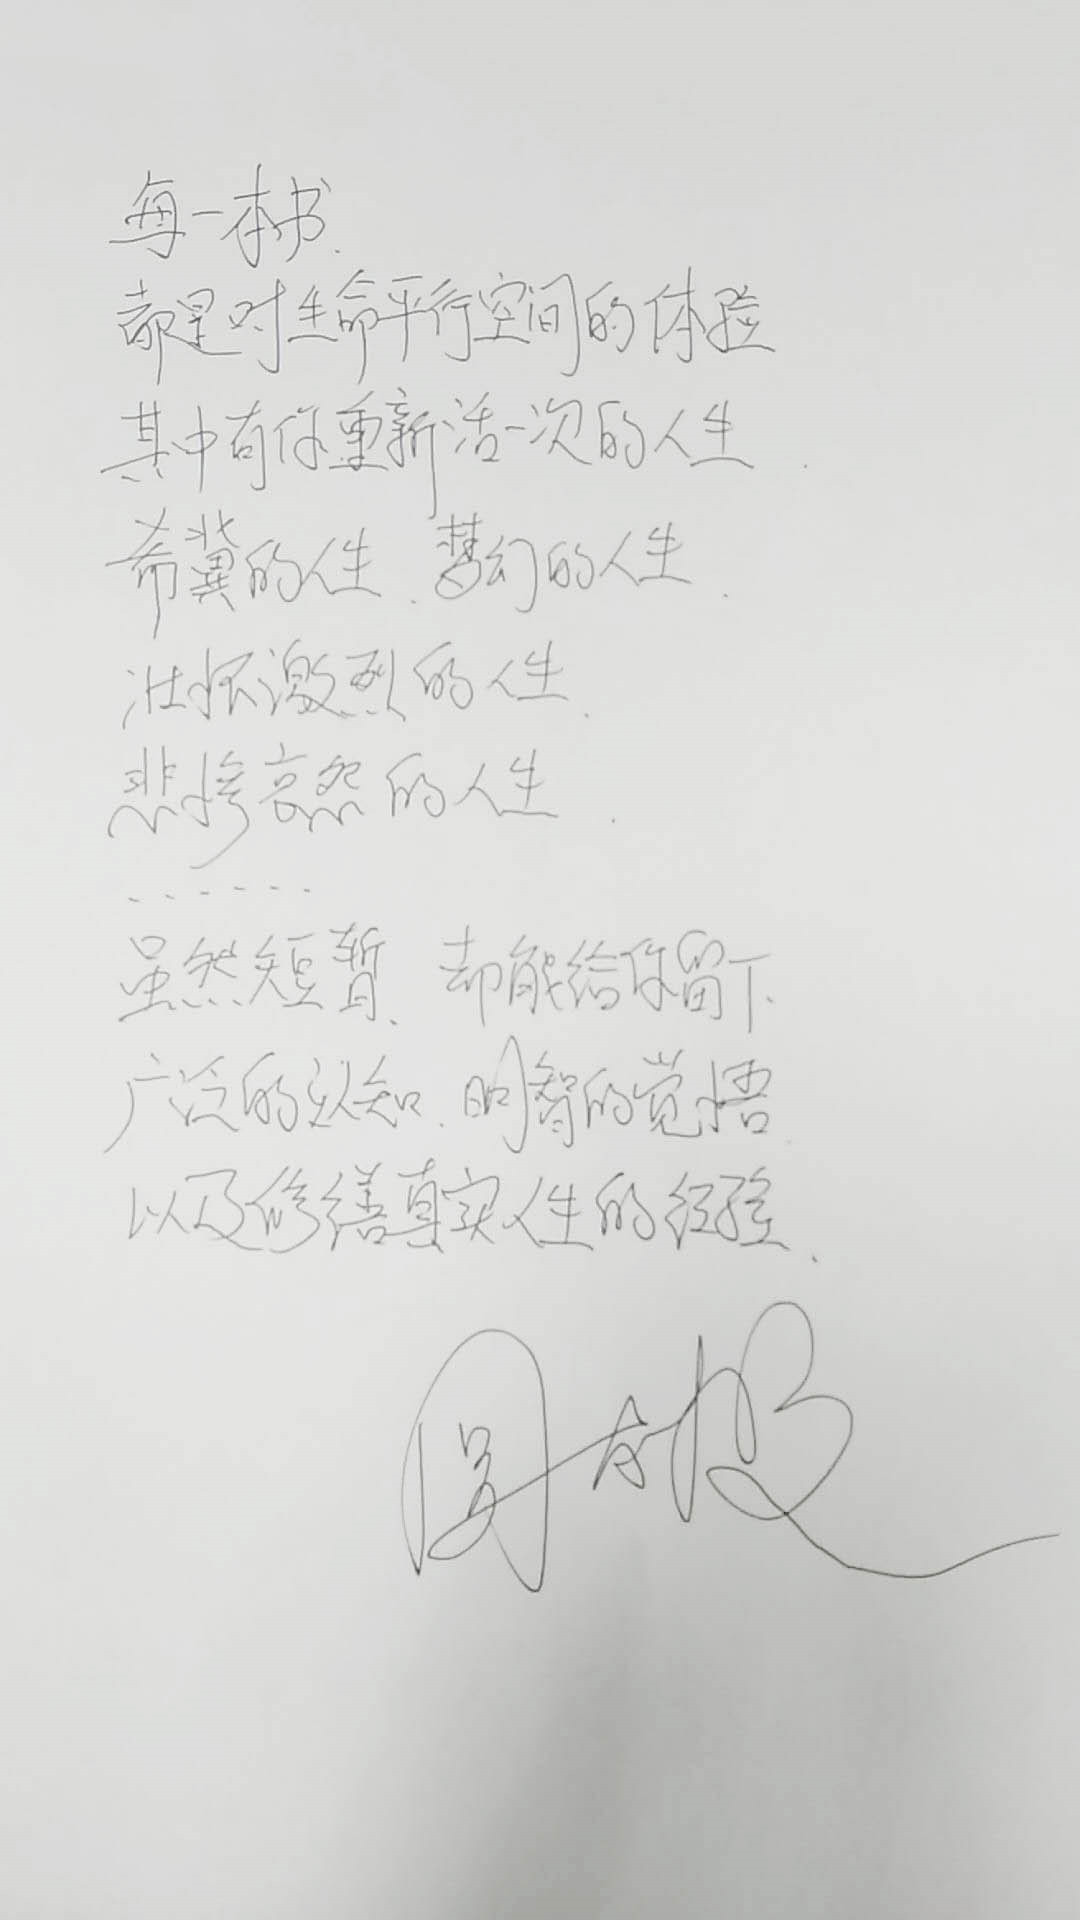 每一本书、
都是对生命平行空间的体验
其中有你重新活一次的人生.
希冀的人生、梦幻的人生、
壮怀激烈的人生、
悲惨哀怨的人生.
......
虽然短暂、却能给你留下
广泛的认知、明智的觉悟、
以及修缮真实人生的经验、